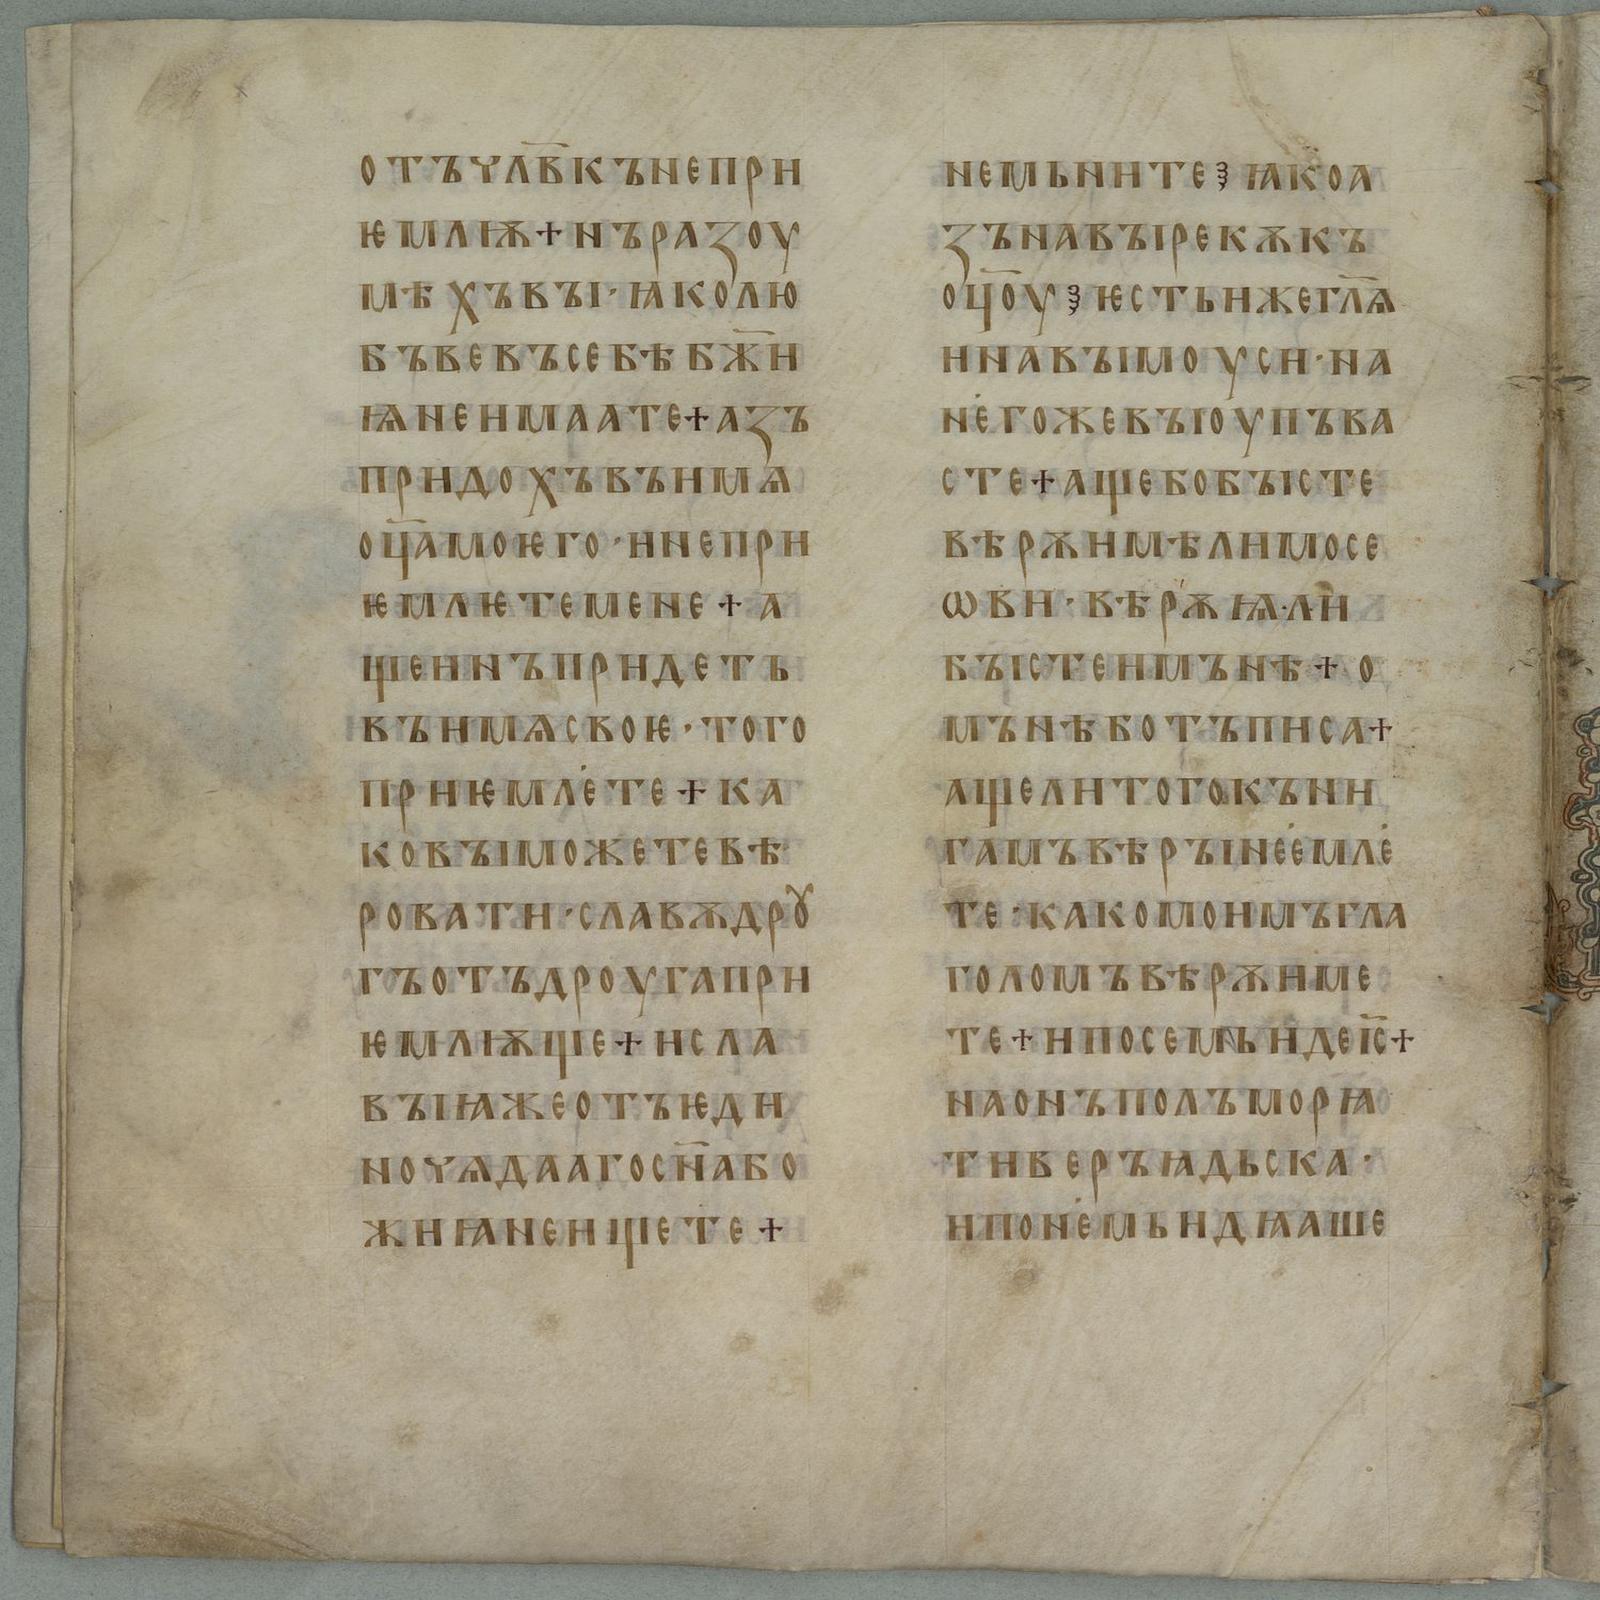 отъчл҃вкънепри
ѥмлѭ+нъразоу
мѣхъвꙑ·ꙗколю
бъвевъсебѣбж҃и
ѩнеимаате+азъ
придохъвъимѧ
оц҃амоѥго·инепри
ѥмлѥтемене+а
щеинъпридеть
въимѧсвоѥ·того
приѥмлете+ка
ковꙑможетевѣ
ровати·славѫдрꙋ
гъотъдроугапри
ѥмлѭще+исла
вꙑꙗжеотъѥди
ночѧдаагосн҃або
жиꙗнеищете+
немьните ꙗкоа
зънавꙑрекѫкъ
оц҃оу ѥстьижегл҃ѧ
инавꙑмоуси·на
негожевꙑоупъва
сте+ащебобꙑсте
вѣрѫимѣлимосе
ѡви·вѣрѫѩ·ли
бꙑстеимънѣ+о
мънѣботъписа+
ащелитогокъни
гамъвѣрꙑнеемле
те·какомоимъгла
голомъвѣрѫиме
те+ипосемьидеіс҃+
наонъполъморꙗ
тиверъꙗдьска·
ипонемьидꙗаше